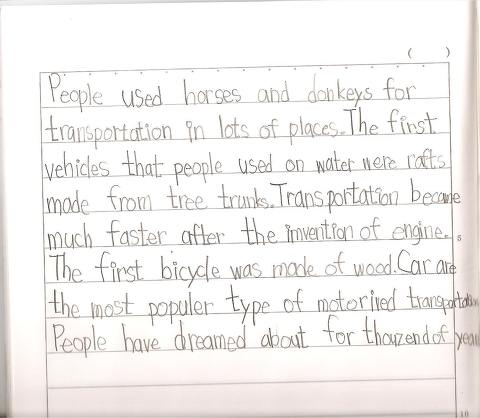 ( )
People used horses and donkeys for
transportation in lots of places. The first
vehicles that people used on water were rafts
made from tree trunks. Transportation became
much faster after the invention of engine.
The first bicycle was made of wood. Car are
the most populer type of motorived transportation
People have dreamed about for thouzend of year
10